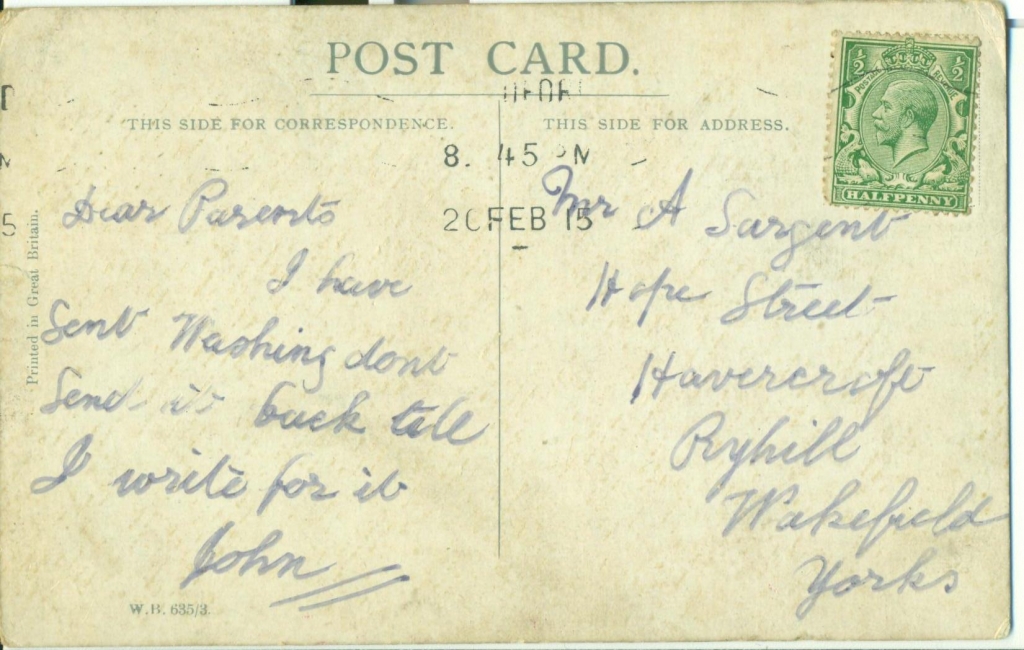 POST CARD.
THIS SIDE FOR CORRESPONDENCE.
THIS SIDE FOR ADDRESS.
½ ½
HALFPENNY
8. 45 PM
20 FEB 15
Printed in Great Britain.
Dear Parents
I have
Sent Washing dont
Send it back tell
I write for it
John
W.B. 635/3.
Mr A Sargent
Hope Street
Havercroft
Ryhill
Wakefield
Yorks